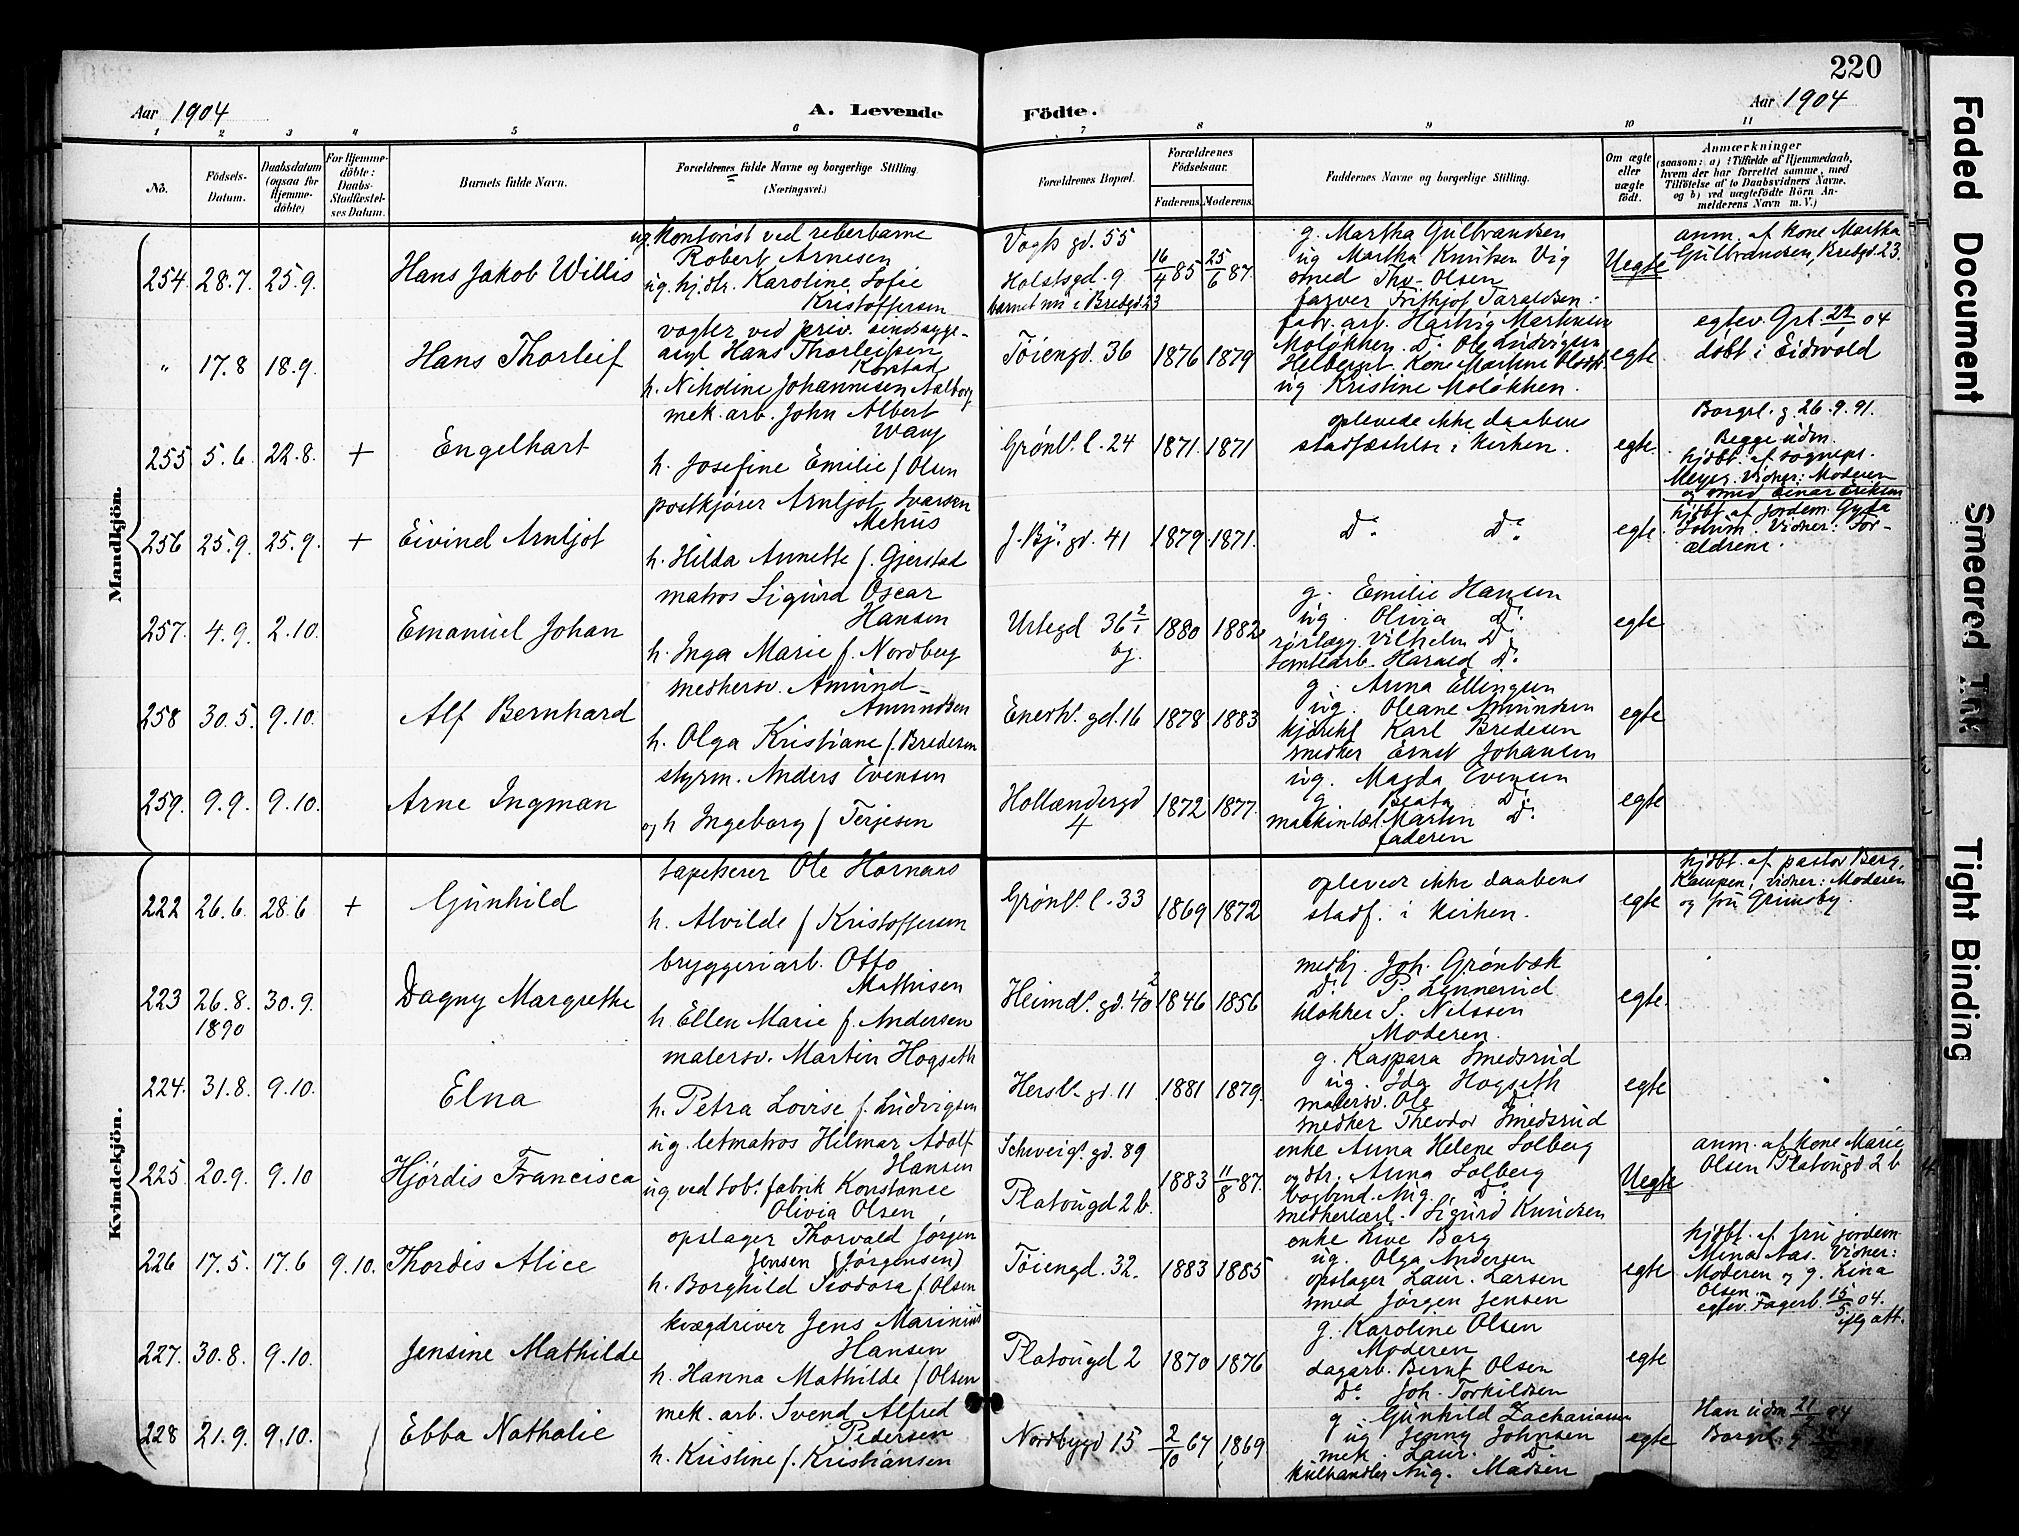 220
Aar 1904
A. Levende
Födte.
Aar 1904
1 2 3 4 5 6 7 8 9 10 11
No.
Födsels-
Datum.
Daabsdatum
(ogsaa for
Hjemme-
döbte)
For Hjemme-
döbte:
Daabs-
Stadfæstel-
ses Datum.
Barnets fulde Navn.
Forældrenes fulde Navne og borgerlige Stilling.
(Næringsvei.)
Forældrenes Bopæl.
Forældrenes
Födselsaar.
Faderens. Moderens.
Faddernes Navne og borgerlige Stilling.
Om ægte
eller
uægte
födt.
Anmærkninger
(saasom: a) i Tilfælde af Hjemmedaab,
hvem der har forrettet samme, med
Tilföielse af to Daabsvidners Navne,
og b) ved uægtefödte Börn An-
melderens Navn m. V.)
Mandkjön.
254. 28.7. 25.9. Hans Jakob Willis
ug. Kontorist ved reberbane
Robert Arnesen
ug. hj. dtr. Karoline Sofie
Kristoffersen
Vogts gd. 55
Holstsgd. 9
barnet nu i Bredgd 23
16/4 85 25/6 87.
g. Martha Gulbrandsen
ug Martha Knutsen Vig
smed Thv. Olsen
farver Frithjof Taraldsen.
Uegte
anm. af kone Martha
Gulbrandsen, Bredgd. 23.
" 17.8 18.9. Hans Thorleif
vogter ved priv. sindssyge-
asyl Hans Thorleifsen
Korstad
h. Nikoline Johannesen Aalborg
Töiengd. 36 1876 1879
fabr. arb. Hartvig Martinsen
Molökken. Do Ole Ludvigsen
Helberget. Kone Martine
ug Kristine Molökken.
egte
egtev. Grl. 22 04
döbt i Eidsvold
255 5.6. 22.8. + Engelhart
mek. arb. John Albert
Wang
h. Josefine Emilie f. Olsen
Grønl. l. 24 1871. 1871
oplevede ikke daabens
stadfæstelse i kirken.
egte.
Borgl. g. 26.9.91.
Begge udm.
hjdbt. af sognepr.
Meyer. Vidner: Moderen
og smed Einar Eriksen
256 25.9. 25.9. + Eivind Arnljot
postkjører Arnljot Ivarsen
Mehus
h. Hilda Annette f. Gjerstad
J. Bj. gd. 41 1879. 1871.
Do Do
egte.
hjdbt af jordem. Gyda
Vidner: For-
ældrene.
257. 4.9. 2.10. Emanuel Johan
matros Sigurd Oscar
Hansen
h. Inga Marie f. Nordberg
Urtegd 36 2/1
bg.
1880 1882
g. Emilie Hansen
ug. Olivia Do
rörlægg. Vilhelm Do
tomtearb. Harald Do
egte
258 30.5. 9.10. Alf Bernhard
snedkersv. Amund
Amundsen
h. Olga Kristiane f. Bredesen
Enerh. gd. 16 1878 1883
g. Anna Ellingsen
ug. Oleane Amundsen
Karl Bredesen
snedker Ernst Johansen
egte
259. 9.9. 9.10. Arne Ingman
styrm. Anders Evensen
og h Ingeborg f Terjesen
Hollændergd
4
1872 1877.
ug. Magda Evensen
g Beata Do
maskinlærl. Martin Do
faderen
egte
Kvindekjön.
222 26.6. 28.6 + Gunhild
tapetserer Ole Hornæs
h. Alvilde f Kristoffersen
Grønl. l. 33 1869 1872
oplever ikke daabens
stadf. i kirken.
egte
hjdbt. af pastor Berg,
Kampen, Vidner: Moderen
og fru Grimsby.
223 26.8. 30.9. Dagny Margrethe
1890
bryggeriarb. Otto
Mathisen
h. Ellen Marie f. Andersen
Heimdl. gd. 40 2 1846 1856
medhj. Joh. Grönbæk
Do P. Linnerud
klokker S. Nilssen
Moderen.
egte.
224. 31.8. 9.10. Elna
malersv. Martin Hogseth
h. Petra Lovise f. Ludvigsen
Hersl. gd. 11 1881 1879.
g. Kaspara Smedsrud
ug. Ida Hogseth
malersv. Ole Do
snedker Theodor Smedsrud
egte
225. 20.9. 9.10 Hjördis Francisca
ug. letmatros Hilmar Adolf
Hansen
ug ved tob. fabrik Konstance
Olivia Olsen
Schweigl. gd. 89
Platougd 2 b.
1883 11/8 87.
enke Anna Helene Solberg
og dtr. Anna Solberg
bogbind. Aug. Do
snedkerlærl. Sigurd Knudsen
Uegte
anm. af kone Marie
Olsen Platougd 2 b
226 17.5. 17.6 9.10. Thordis Alice
opslager Thorvald Jørgen
Jensen (Jørgensen)
h. Borghild Isodora f. Olsen
Töiengd. 32. 1883 1885
enke Live Borg
ug. Olga Andersen
opslager Laur. Larsen
smed Jörgen Jensen
egte
hjdbt. af fru jordem.
Mina Aas. Vidner:
Moderen og g. Lina
Olsen.
egtev. Fagerb. 15/5 04.
iflg. att.
227. 30.8. 9.10. Jensine Mathilde
kvægdriver Jens Marinius
Hansen
h. Hanna Mathilde f Olsen
Platougd 2 1870 1876
g. Karoline Olsen
Moderen
dagarb. Bernt Olsen
Do Joh. Torkildsen
egte
228 21.9. 9.10. Ebba Nathalie
mek. arb. Svend Alfred
Pedersen
h. Kristine f. Kristiansen
Nordbygd 15 2/10 67 1869
g. Gunhild Zachariasen
ug Jenny Johnsen
mek. Laur. Do
kulhandler Aug. Madsen
egte
Han udm 21 04
Borgl. g
Faded Document
Smeared Ink
Tight Binding